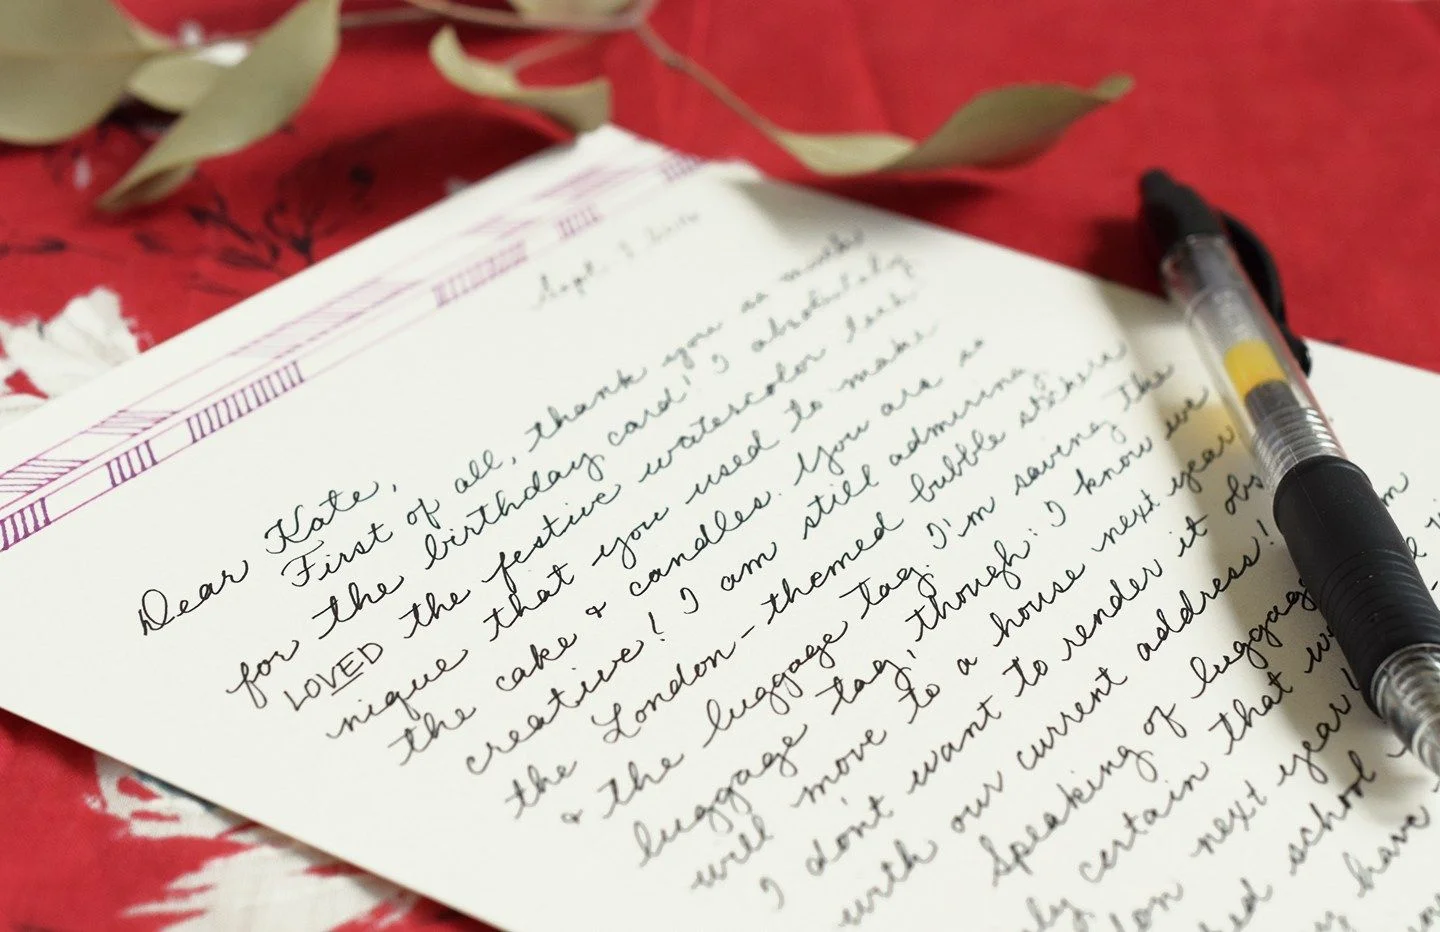 Sept.
Dear Kate,
First of all, thank you so much
for the birthday card! I absolutely
LOVED the festive watercolor tech
nique that you used to make
the cake & candles. You are so
creative! I am still admiring
the London-themed bubble stickers
& the luggage tag. I'm saving the
luggage tag, though: I know we
will move to a house next year
I don't want to render it obs
with our current address!
Speaking of luggage
certain that
next year!
school
have